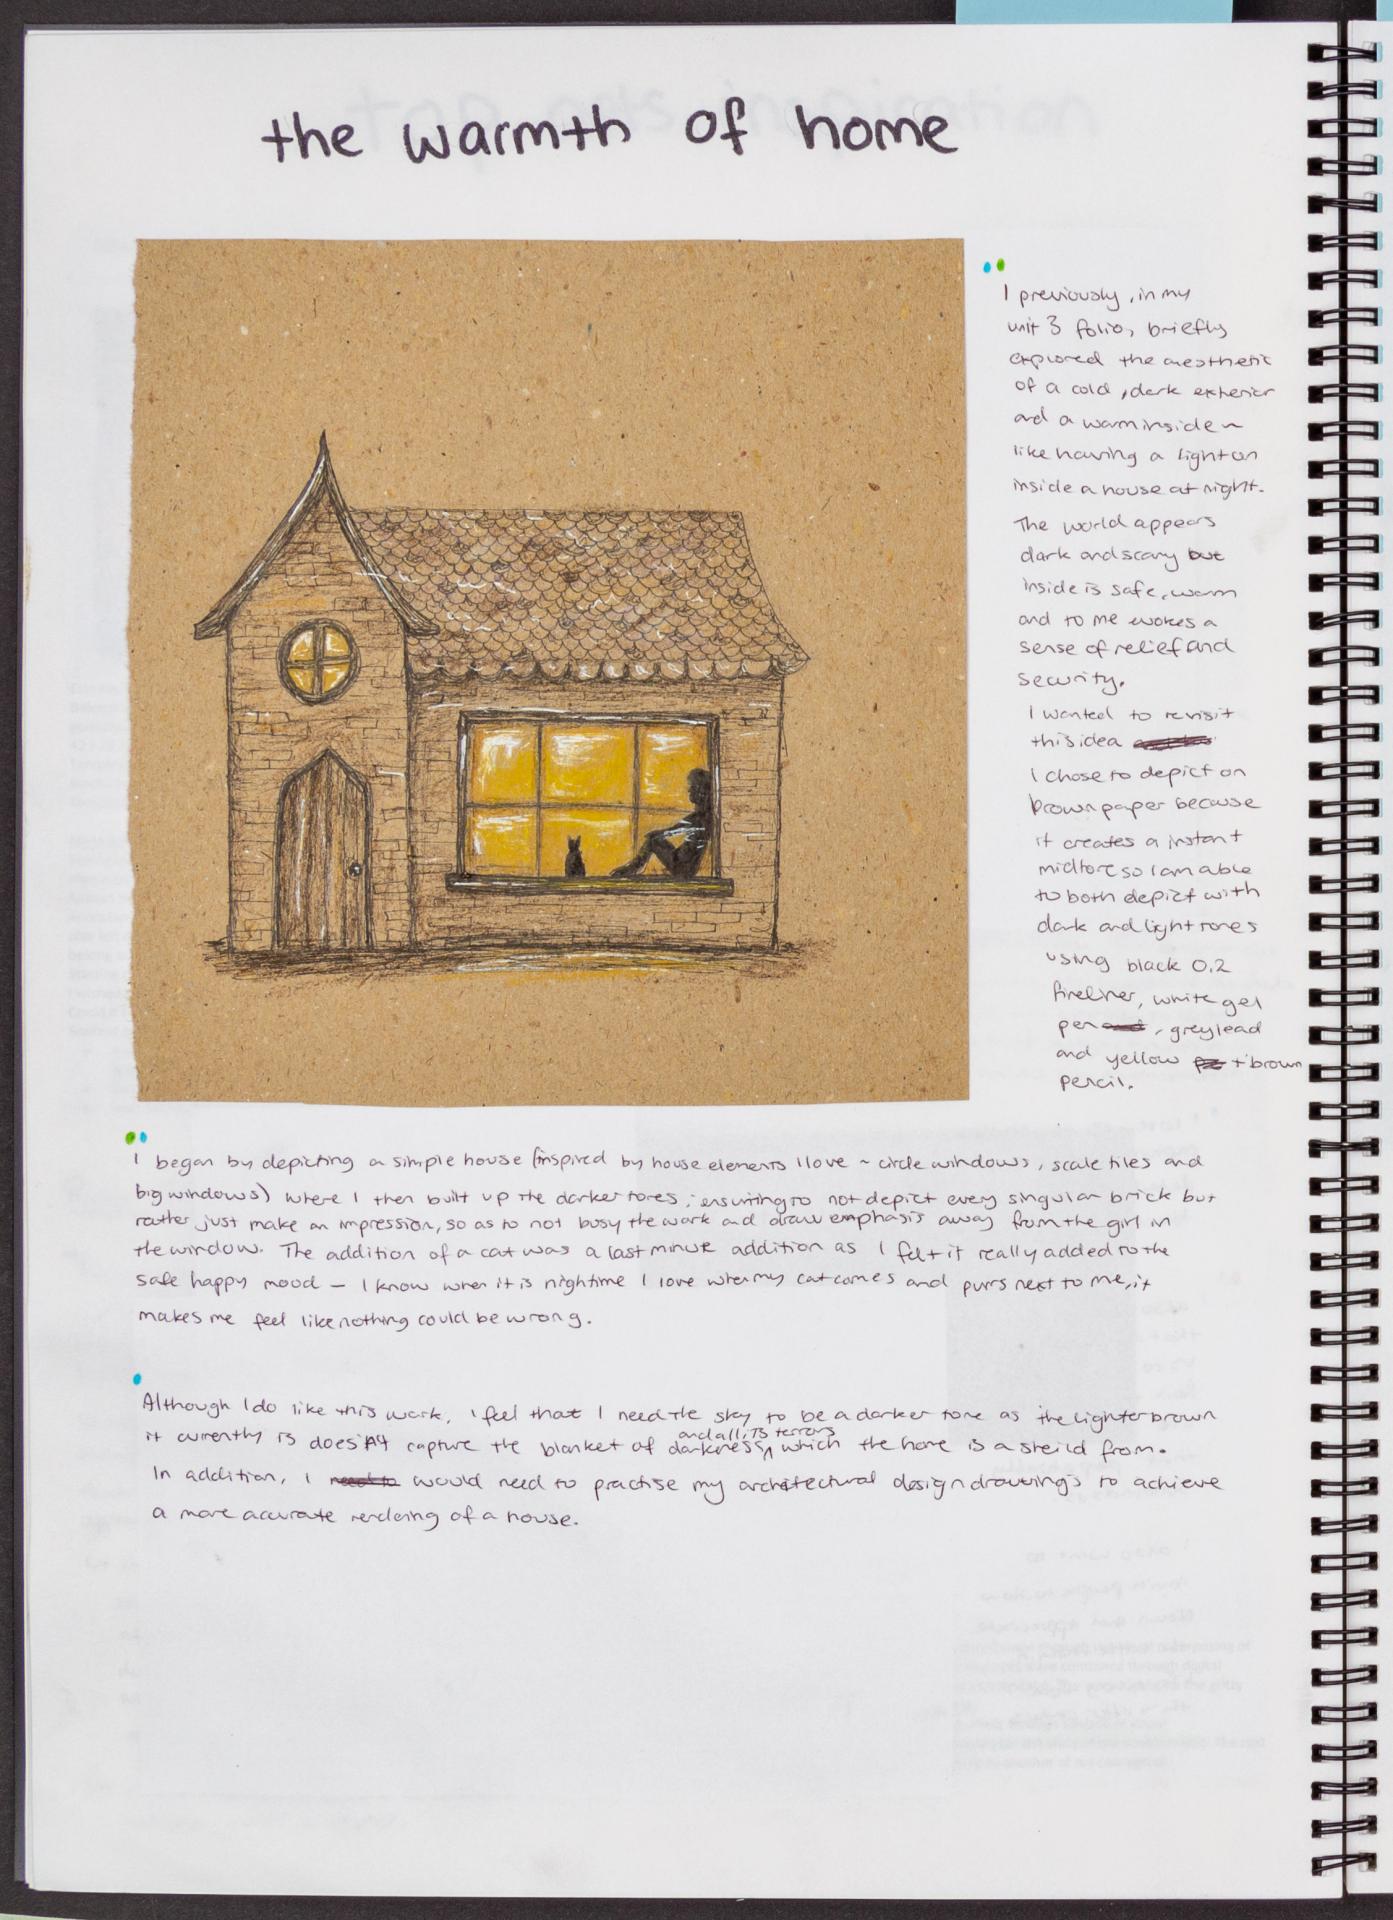 the warmth of home
I previously, in my
unit 3 folio, briefly
explored the aesthetic
of a cold, dark exterior
and a warm inside ~
like having a light on
inside a house at night.
The world appears
dark and scary but
inside is safe, warm
and to me evokes a
sense of relief and
security.
I wanted to revisit
this idea
I chose to depict on
brown paper because
it creates a instant
midtone so I am able
to both depict with
dark and light tones
using black 0.2
fineliner, white gel
pen, greylead
and yellow + brown
pencil.
I began by depicting a simple house (inspired by house elements I love ~ circle windows, scale tiles and
big windows) where I then built up the darker tones, ensuring to not depict every singular brick but
rather just make an impression, so as to not busy the work and draw emphasis away from the girl in
the window. The addition of a cat was a last minute addition as I felt it really added to the
safe happy mood – I know when it is nightime I love when my cat comes and purrs next to me, it
makes me feel like nothing could be wrong.
Although I do like this work, I feel that I need the sky to be a darker tone as the lighter brown
it currently is does'nt capture the blanket of darkness and all its terrors which the home is a sheild from.
In addition, I would need to practise my architectural design drawings to achieve
a more accurate rendering of a house.